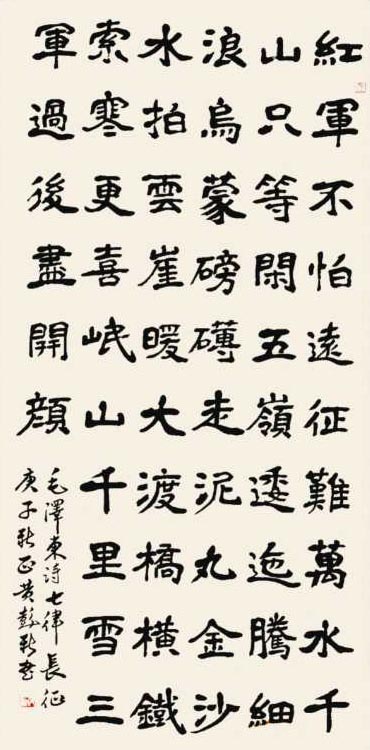 紅軍不怕遠征難萬水千
山只等閑五嶺逶迤騰細
浪烏蒙磅礴走泥丸金沙
水拍雲崖暖大渡橋橫鐵
索寒更喜岷山千里雪三
軍過後盡開顏
毛澤東詩七律長征
庚子新正黄彭新书